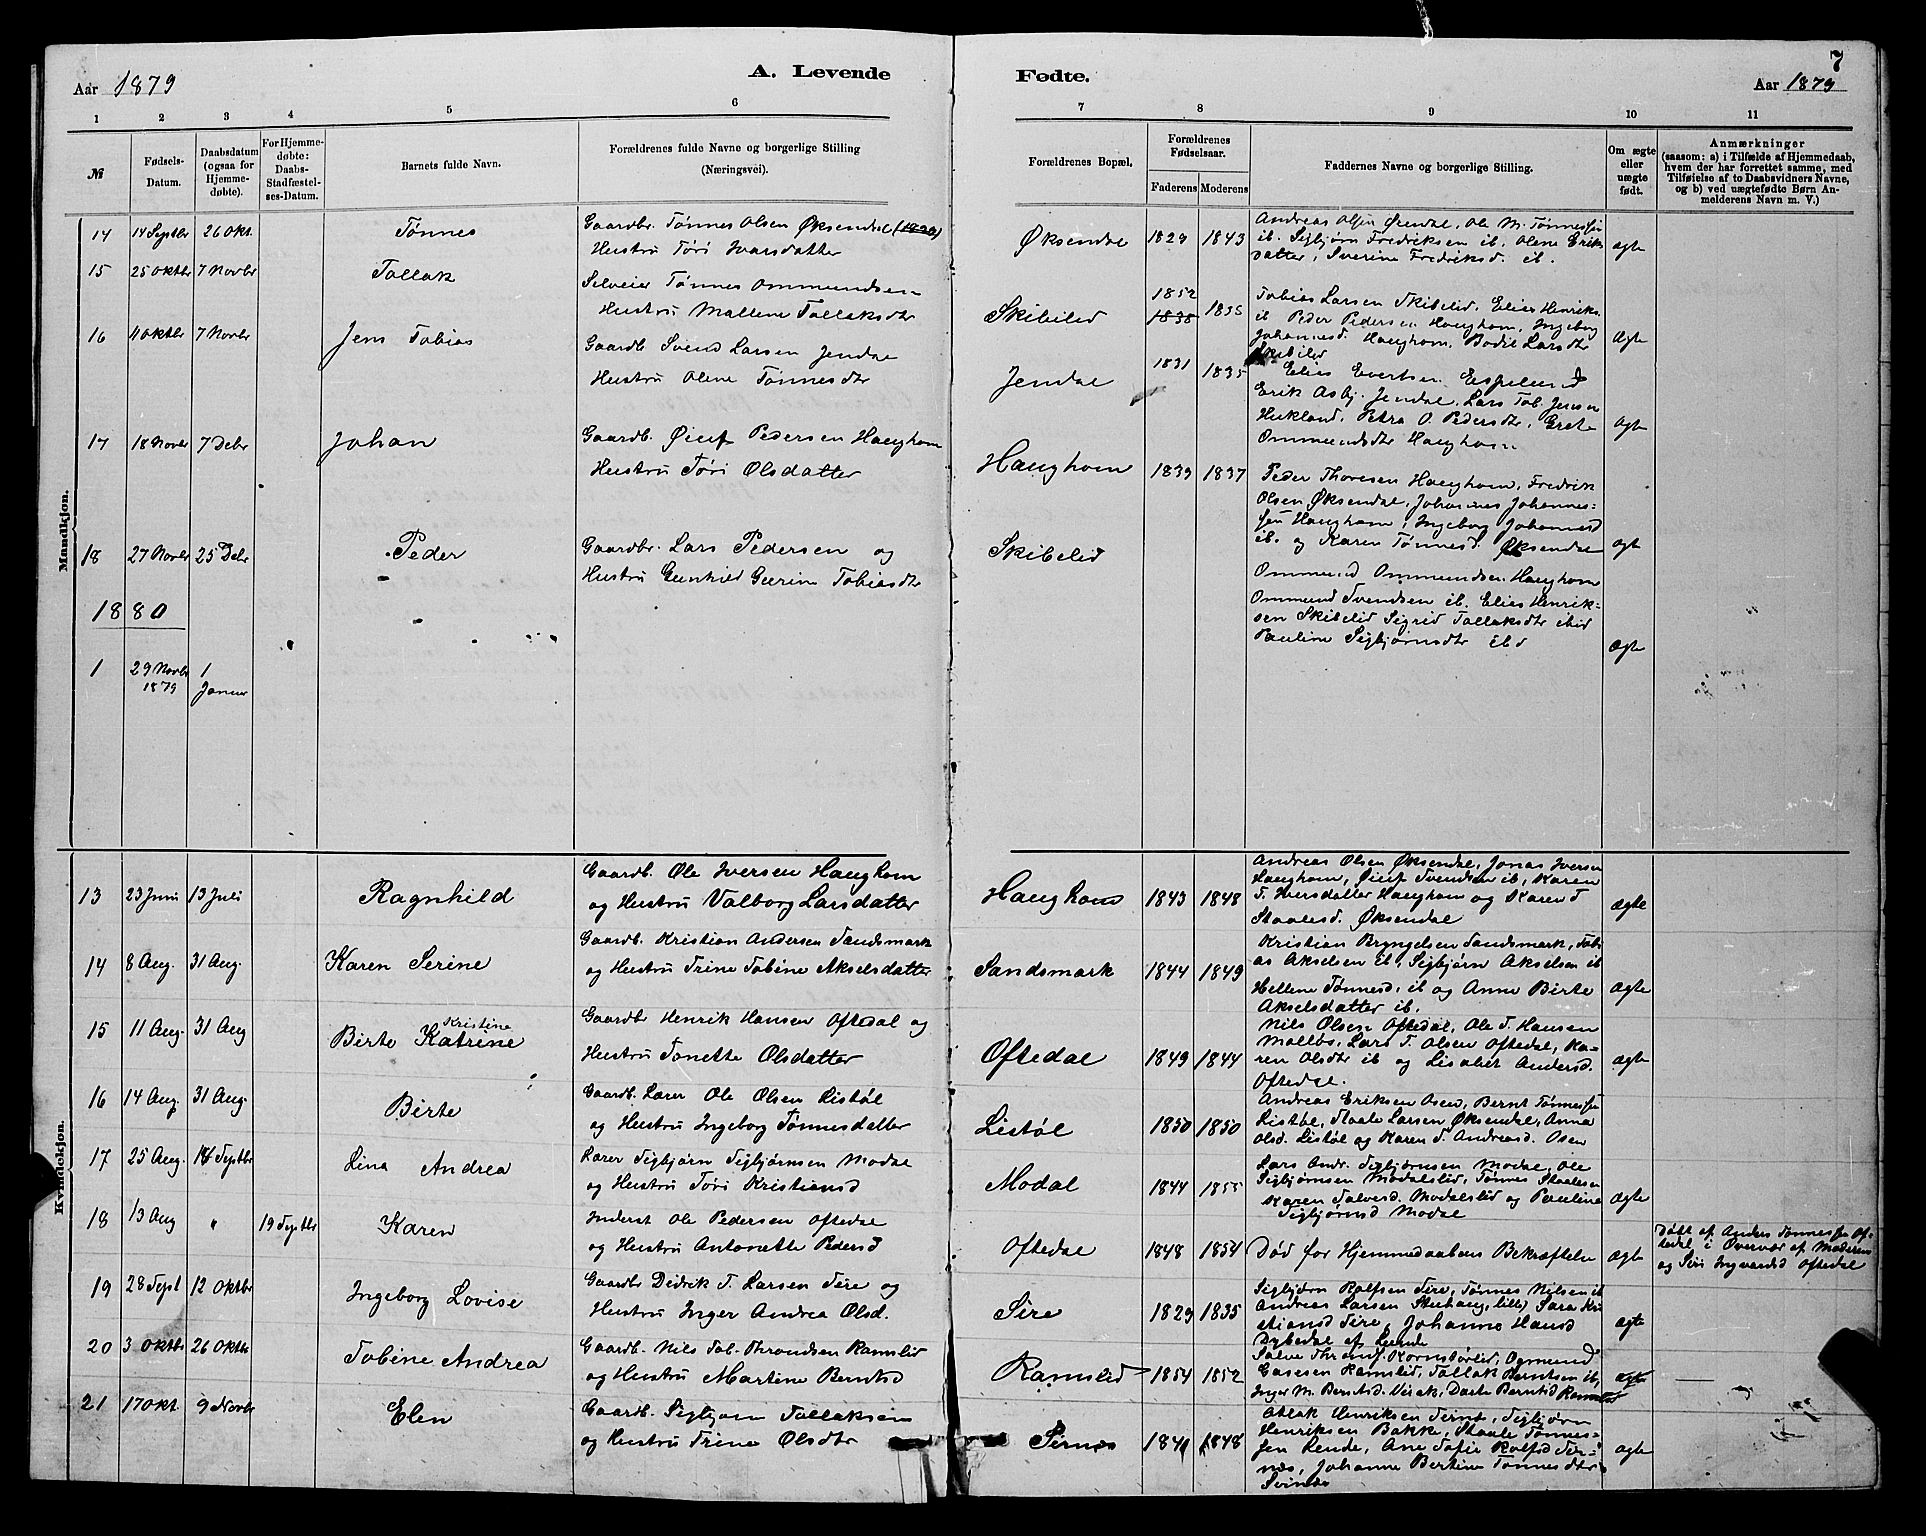 7
Aar 1879
A. Levende
Fødte.
Aar 1879
1 2 3 4 5 6 7 8 9 10 11
№
Fødsels-
Datum.
Daabsdatum
(ogsaa for
Hjemme-
døbte).
For Hjemme-
døbte:
Daabs-
Stadfæstel-
ses-Datum.
Barnets fulde Navn.
Forældrenes fulde Navne og borgerlige Stilling
(Næringsvei).
Forældrenes Bopæl.
Forældrenes
Fødselsaar.
Faderens Moderens
Faddernes Navne og borgerlige Stilling.
Om ægte
eller
uægte
født.
Anmærkninger
(saasom: a) i Tilfælde af Hjemmedaab,
hvem der har forrettet samme, med
Tilføielse af to Daabsvidners Navne,
og b) ved uægtefødte Børn An-
melderens Navn m. V.)
Mandkjøn.
14 14 Septbr 26 Okt. Tønnes
Gaardbr. Tønnes Olsen Øksendal
Hustru Tøri Ivarsdatter
Øksendal 1829 1843
Andreas Olsen Øxendal, Ole M. Tønnessen
ib. Sigbjørn Fredriksen ib, Olene Eriks
datter, Sverine Fredriksd. ib.
ægte
15 25 Oktbr 7 Novbr Tallak
Selveier Tønnes Ommundsen
Hustru Mallene Tallaksdtr
Skibelid 1852 1838 1835
Tobias Larsen Skibelid, Elias Henriks.
ib Peder Pedersen Haughom, Ingeborg
Johannesd. Haughom, Bodil Larsdtr
Skibelid
ægte
16 11 Oktbr 7 Novbr Jens Tobias
Gaardb. Svend Larsen Jendal
Hustru Olene Tønnesdtr
Jendal 1831 1835
Elias Evertsen Espelund
Erik Asbj. Jendal, Lars Tob. Jensen
Hukland, Petra O. Pedersdtr, Grete
Ommundsdtr Haughom
ægte
17 18 Novbr 7 Debr Johan
Gaardb. Øiuf Pedersen Haughom
Hustru Tøri Olsdatter
Haughom 1839 1837
Peder Thoresen Haughom, Fredrik
Olsen Øksendal, Johannes Johannes=
sen Haughom, Ingeborg Johannesd
ib. og Karen Tønnesd. Øksendal
ægt
18 27 Novbr 25 Debr Peder
Gaardbr. Lars Pedersen og
Hustru Gunhild Gurine Tobiasdtr
Skibelid
Ommund Ommundsen Haughom
Ommund Svendsen ib. Elias Henrik=
sen Skibelid Sigrid Tallaksdtr ibid
Pauline Sigbjørnsdtr ibd
ægte
1880
1 29 Novbr 1
1879 Januar
Kvindekjøn.
13 23 Juni 13 Juli Ragnhild
Gaardb. Ole Iversen Haughom
og Hustru Valborg Larsdatter
Haughom 1843 1848
Andreas Olsen Øksendal, Jonas Iversen
Haughom, Øiuf Svendsen ib, Karen
T. Iversdatter Haughom og Karen T
Staalesd. Øksendal
ægte
14 8 Aug. 31 Aug. Karen Serine
Gaardb. Kristian Andersen Sandsmark
og Hustru Trine Tobine Akselsdatter
Sandsmark 1844 1849
Kristian Bryngelsen Sandsmark, Tobi
as Akselsen ib, Sigbjørn Akselsen ib
Hellene Tønnesd. ib og Anne Birte
Akselsdatter ib.
ægte
15 11 Aug. 31 Aug Kristine
Birte Katrine
Gaardbr Henrik Hansen Oftedal og
Hustru Tonette Olsdatter
Oftedal 1849 1844
Nils Olsen Oftedal, Ole T. Hansen
Mollbø, Lars T. Olsen Oftedal, Ka-
ren Olsdtr ib og Lisabet Andersd.
Oftedal.
ægte
16 14 Aug. 31 Aug. Birte
Gaardb. Lærer Ole Olsen Listøl
og Hustru Ingeborg Tønnesdatter
Listøl 1850 1850
Andreas Eriksen Osen, Bernt Tønnessen
Listøl, Staale Larsen Øksendal, Anna
Olsd. Listøl og Karen T. Andreasd. Osen
17 25 Aug. 14 Septbr Lina Andrea
Lærer Sigbjørn Sigbjørnsen Modal
og Hustru Tøri Kristiansd
Modal 1844 1855
Lars Andr. Sigbjørnsen Modal, Ole
Sigbjørnsen Modalslid, Tønnes Staalesen
Karen Salvesd. Modalslid og Pauline
Sigbjørnsd Modal
ægte
18 13 Aug " 19 Septbr Karen
Inderst Ole Pedersen Oftedal
og Hustru Antonette Pedersd
Oftedal 1848 1854
Død før Hjemmedaabens Bekræftelse
ægte
Døbt af Anders Tønnessen Of-
tedal i Overvær af Moderen
og Siri Ingvarsd Oftedal
19 28 Sept 12 Oktbr Ingeborg Lovise
Gaardbr Didrik T. Larsen Sire og
Hustru Inger Andrea Olsd.
Sire 1829 1835
Sigbjørn Rolfsen Sire, Tønnes Nilsen ib
Andreas Larsen Stuhaug, lille Sara Kri
stiansd Sire, Johanne Hansd
Dybedal af Lunde
ægte
20 3 Oktbr 26 Oktbr Tobine Andrea
Gaardb. Nils Tob. Throndsen Ramslid
og Hustru Martine Berntsd
Ramslid 1854 1852
Salve Thronds. Kornstørlid, Ogmund
Gasesen Ramslid, Tallak Berntsen ib,
Inger M. Berntsd. Virak, Dorte Berntsd Ramslid
ægte
21 17 Okt. 9 Novbr Elen
Gaardb. Sigbjørn Tallaksen
og Hustru Trine Olsdtr
Sirnes 1841 1848
Atlak Henriksen Sirnes, Sigbjørn
Henriksen Bakke, Staale Tønnes=
sen Lende, Ane Sofie Rolfsd Sir=
nes, Johanne Bertine Tønnesdtr
Svindal
ægte